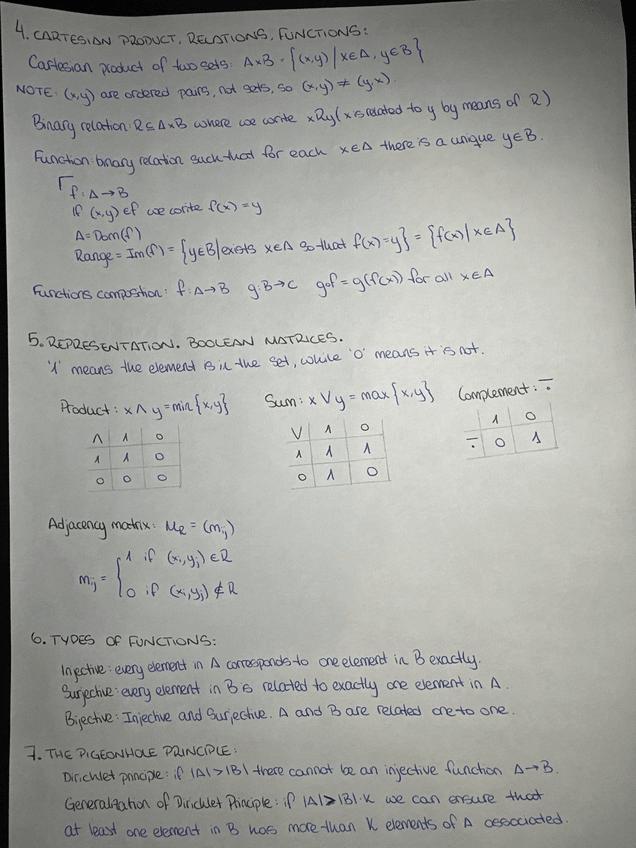 4. CARTESIAN PRODUCT, RELATIONS, FUNCTIONS:
Cartesian product of two sets: A×B = {(x,y) / x∈A, y∈B}
NOTE: (x,y) are ordered pairs, not sets, so (x,y) ≠ (y,x).
Binary relation: R⊆A×B where we write xRy (x is related to y by means of R)
Function: binary relation such that for each x∈A there is a unique y∈B.
f: A→B
If (x,y)∈f we write f(x)=y
A = Dom(f)
Range = Im(f) = {y∈B/exists x∈A so that f(x)=y} = {f(x)/x∈A}
Functions compostion: f: A→B g: B→C gof = g(f(x)) for all x∈A
5. REPRESENTATION. BOOLEAN MATRICES.
'1' means the element is in the set, while '0' means it is not.
Product: x ∧ y = min{x,y} Sum: x ∨ y = max{x,y} Complement: ÷
∧ 1 0 ∨ 1 0 1 0
1 1 0 1 1 1 ÷ 0 1
0 0 0 0 1 0
Adjacency matrix: M_R = (m_ij)
m_ij = { 1 if (x_i, y_j) ∈ R
0 if (x_i, y_j) ∉ R
6. TYPES OF FUNCTIONS:
Injective: every element in A corresponds to one element in B exactly.
Surjective: every element in B is related to exactly one element in A.
Bijective: Injective and Surjective. A and B are related one to one.
7. THE PIGEONHOLE PRINCIPLE:
Dirichlet principle: if |A|>|B| there cannot be an injective function A→B.
Generalization of Dirichlet Principle: if |A|>|B|·K we can ensure that
at least one element in B has more than K elements of A associated.